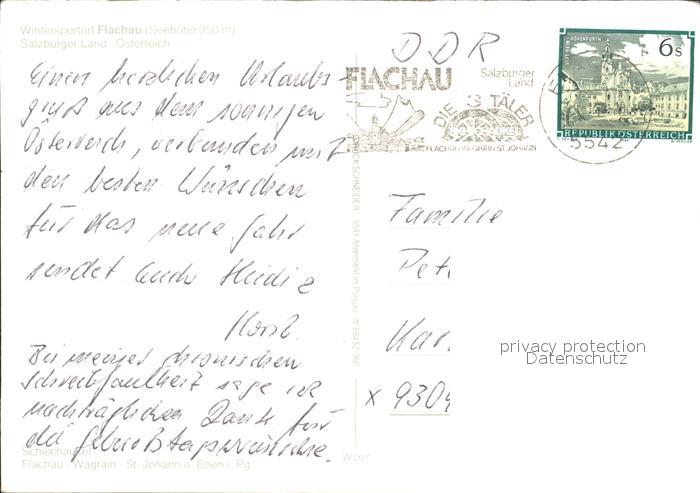 Wintersportort Flachau (Seehöhe 950 m)
Salzburger Land · Österreich
Einen herzlichen Urlaubs-
gruß aus dem sonnigen
Österreich, verbunden mit
den besten Wünschen
für das neue Jahr
sendet Euch Heidi &
Horst.
Bei meiner chronischen
Schreibfaulheit sage ich
nachträglichen Dank für
die Geburtstagswünsche.
Schischaukel
Flachau · Wagrain · St. Johann u. Eben i. Pg.
DDR
FLACHAU
Salzburger
Land
DIE 3 TÄLER
FLACHAU·WAGRAIN·ST.JOHANN
6s
REPUBLIK ÖSTERREICH
5542
SCHNEIDER 5541 Altenmarkt im Pongau
W 207
Familie
Pet
Kar
x 9304
privacy protection
Datenschutz